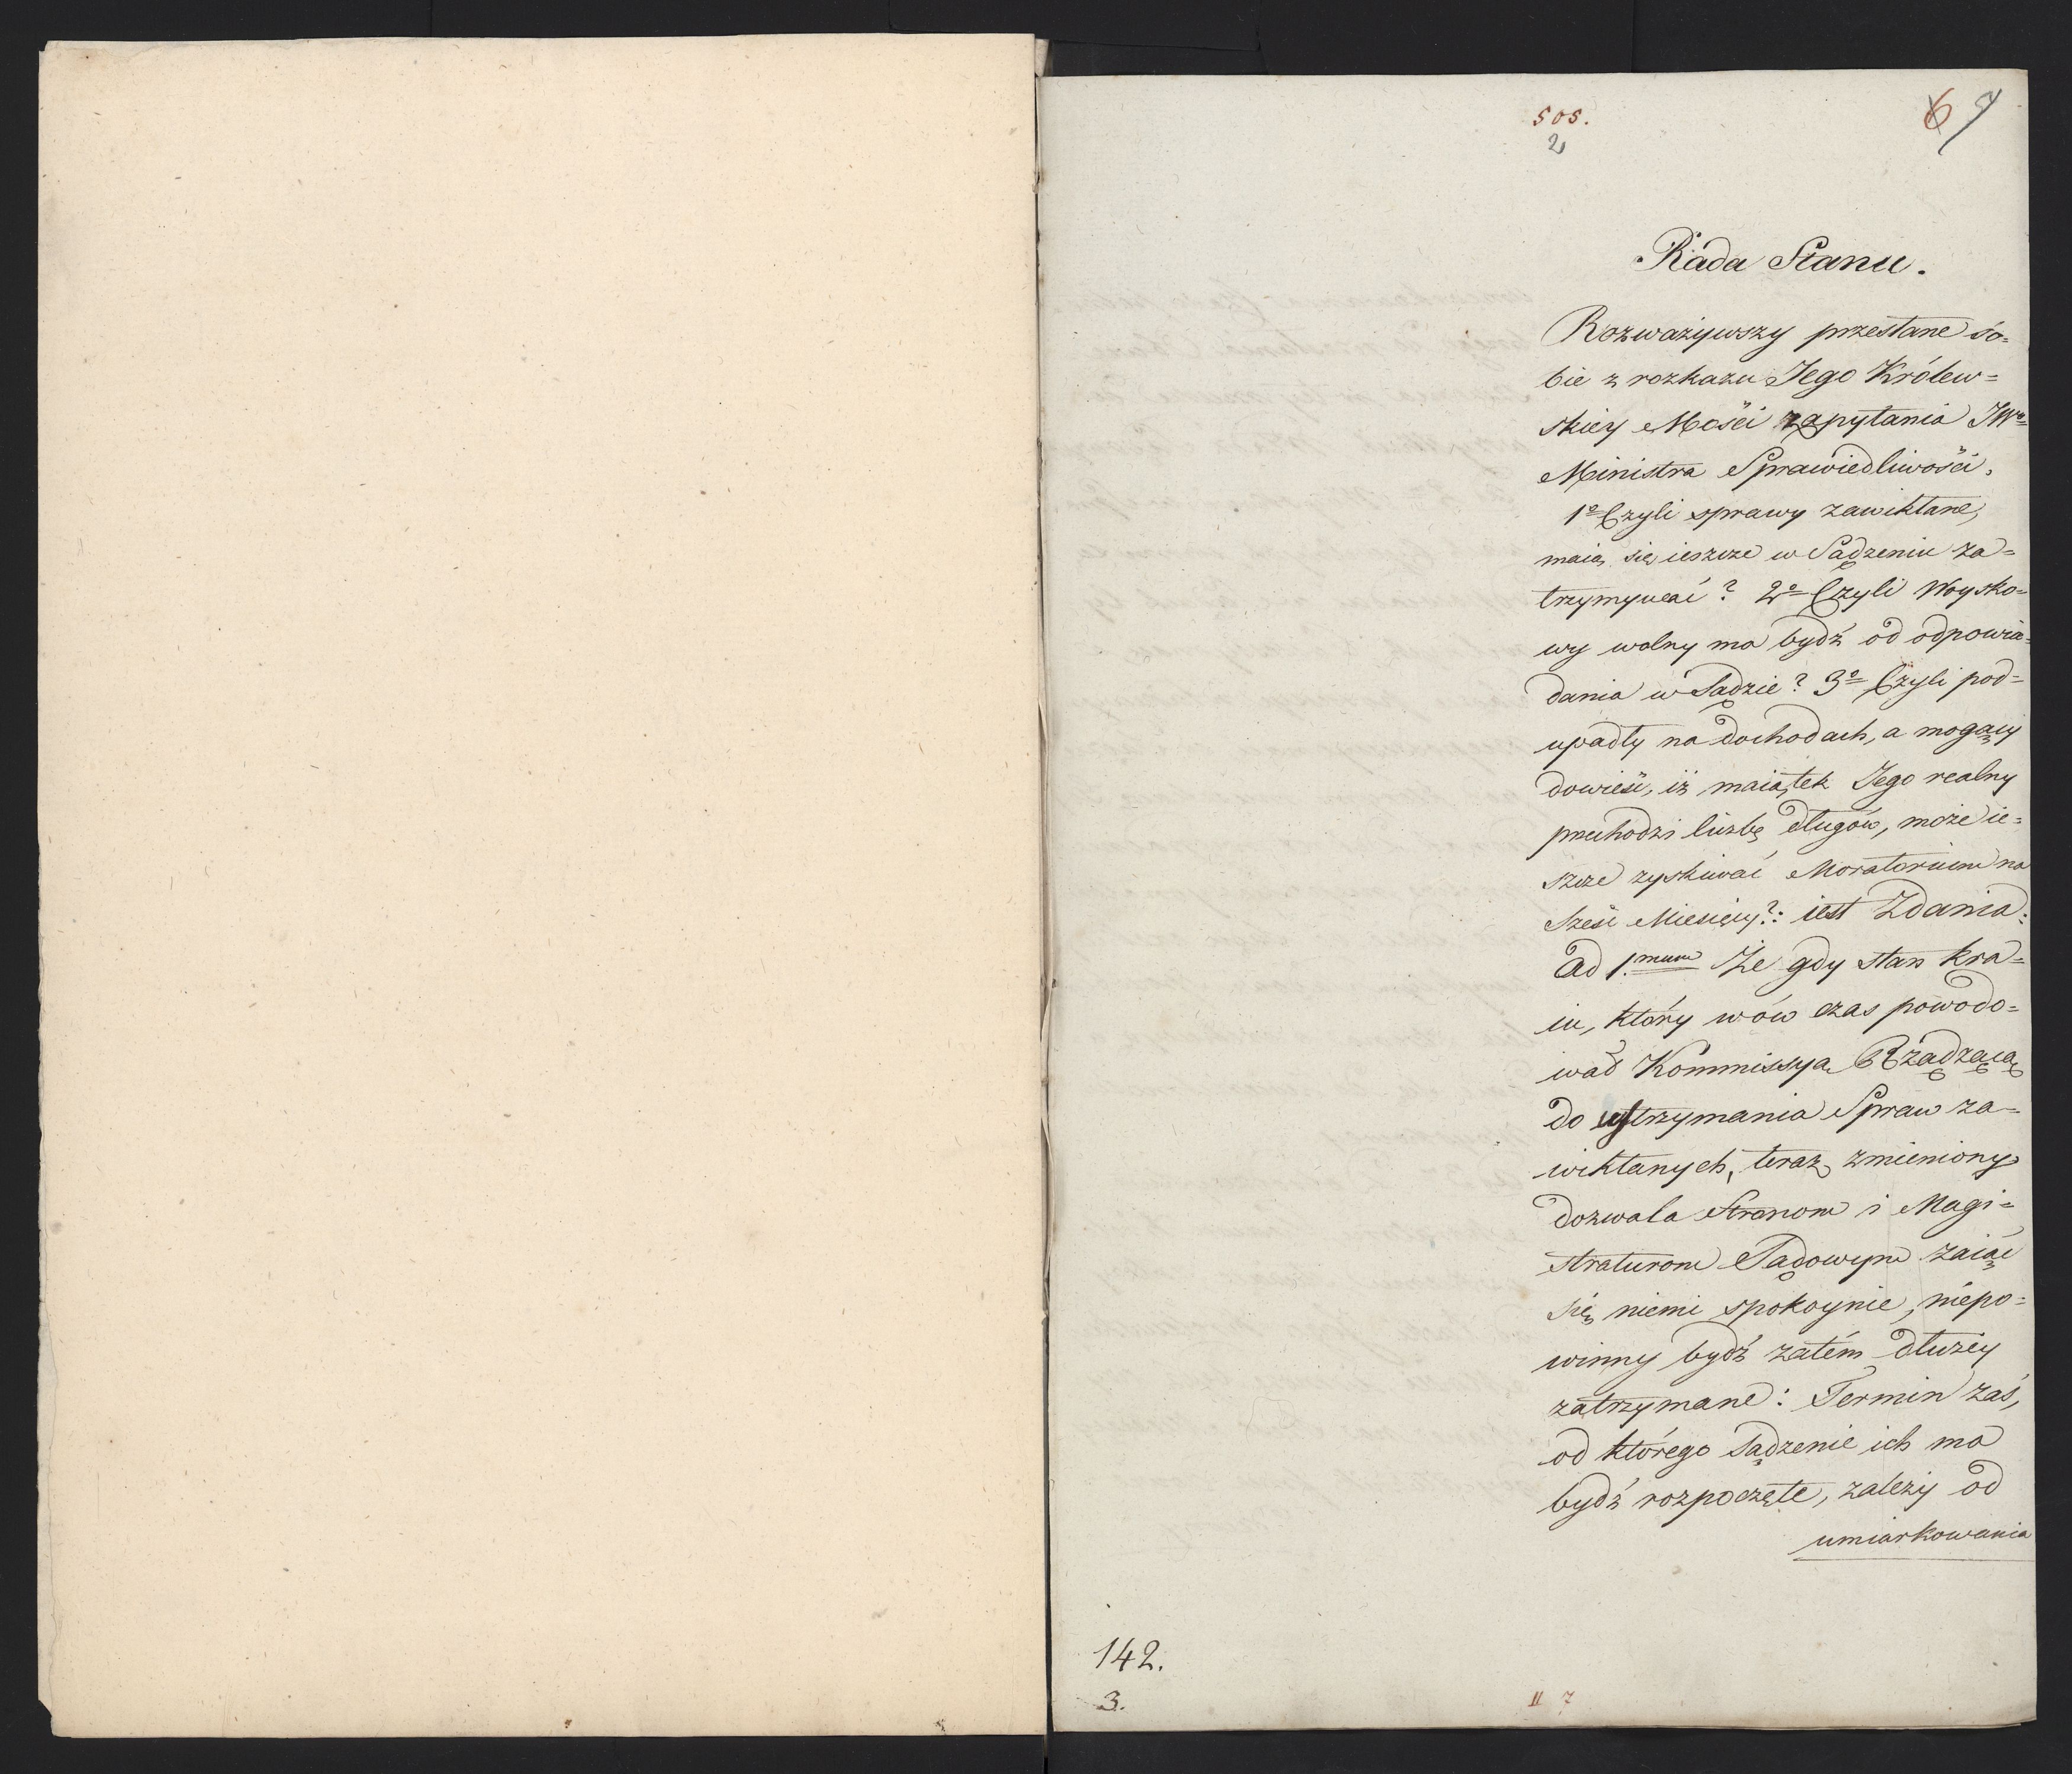 505.
2
6 7
Rada Stanu.
Rozważywszy przesłane so=
bie z rozkazu Jego Królew=
skiey Mości zapytania JWo
Ministra Sprawiedliwości,
1o Czyli sprawy zawikłane,
maią się ieszcze w Sądzeniu za=
trzymywać? 2o Czyli Woysko=
wy wolny ma bydź od odpowia=
dania w Sądzie? 3o Czyli pod=
upadły na dochodach, a mogący
dowieść, iż maiątek Jego realny
przechodzi liczbę długów, może ie=
szcze zyskiwać Moratorium na
sześć Miesięcy?: iest Zdania:
Ad 1.mum Że gdy stan kra=
iu, który wów czas powodo=
wał Kommissyą Rządzącą
do utrzymania Spraw za=
wikłanych, teraz zmieniony
dozwala Stronom i Magi=
straturom Sądowym zaiąć
się niemi spokoynie, niepo=
winny bydź zatém dłużey
zatrzymane: Termin zaś,
od którego sądzenie ich ma
bydź rozpoczęte, zależy od
umiarkowania
142.
3.
II 7